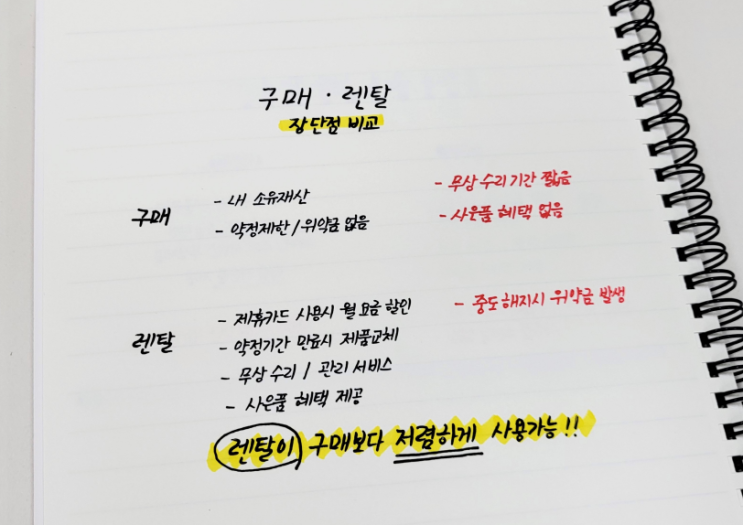 구매 · 렌탈
장단점 비교
구매
- 내 소유재산
- 약정제한/위약금 없음
- 무상 수리 기간 짧음
- 사은품 혜택 없음
렌탈
- 제휴카드 사용시 월 요금 할인
- 약정기간 만료시 제품교체
- 무상 수리 / 관리 서비스
- 사은품 혜택 제공
- 중도해지시 위약금 발생
렌탈이 구매보다 저렴하게 사용가능!!